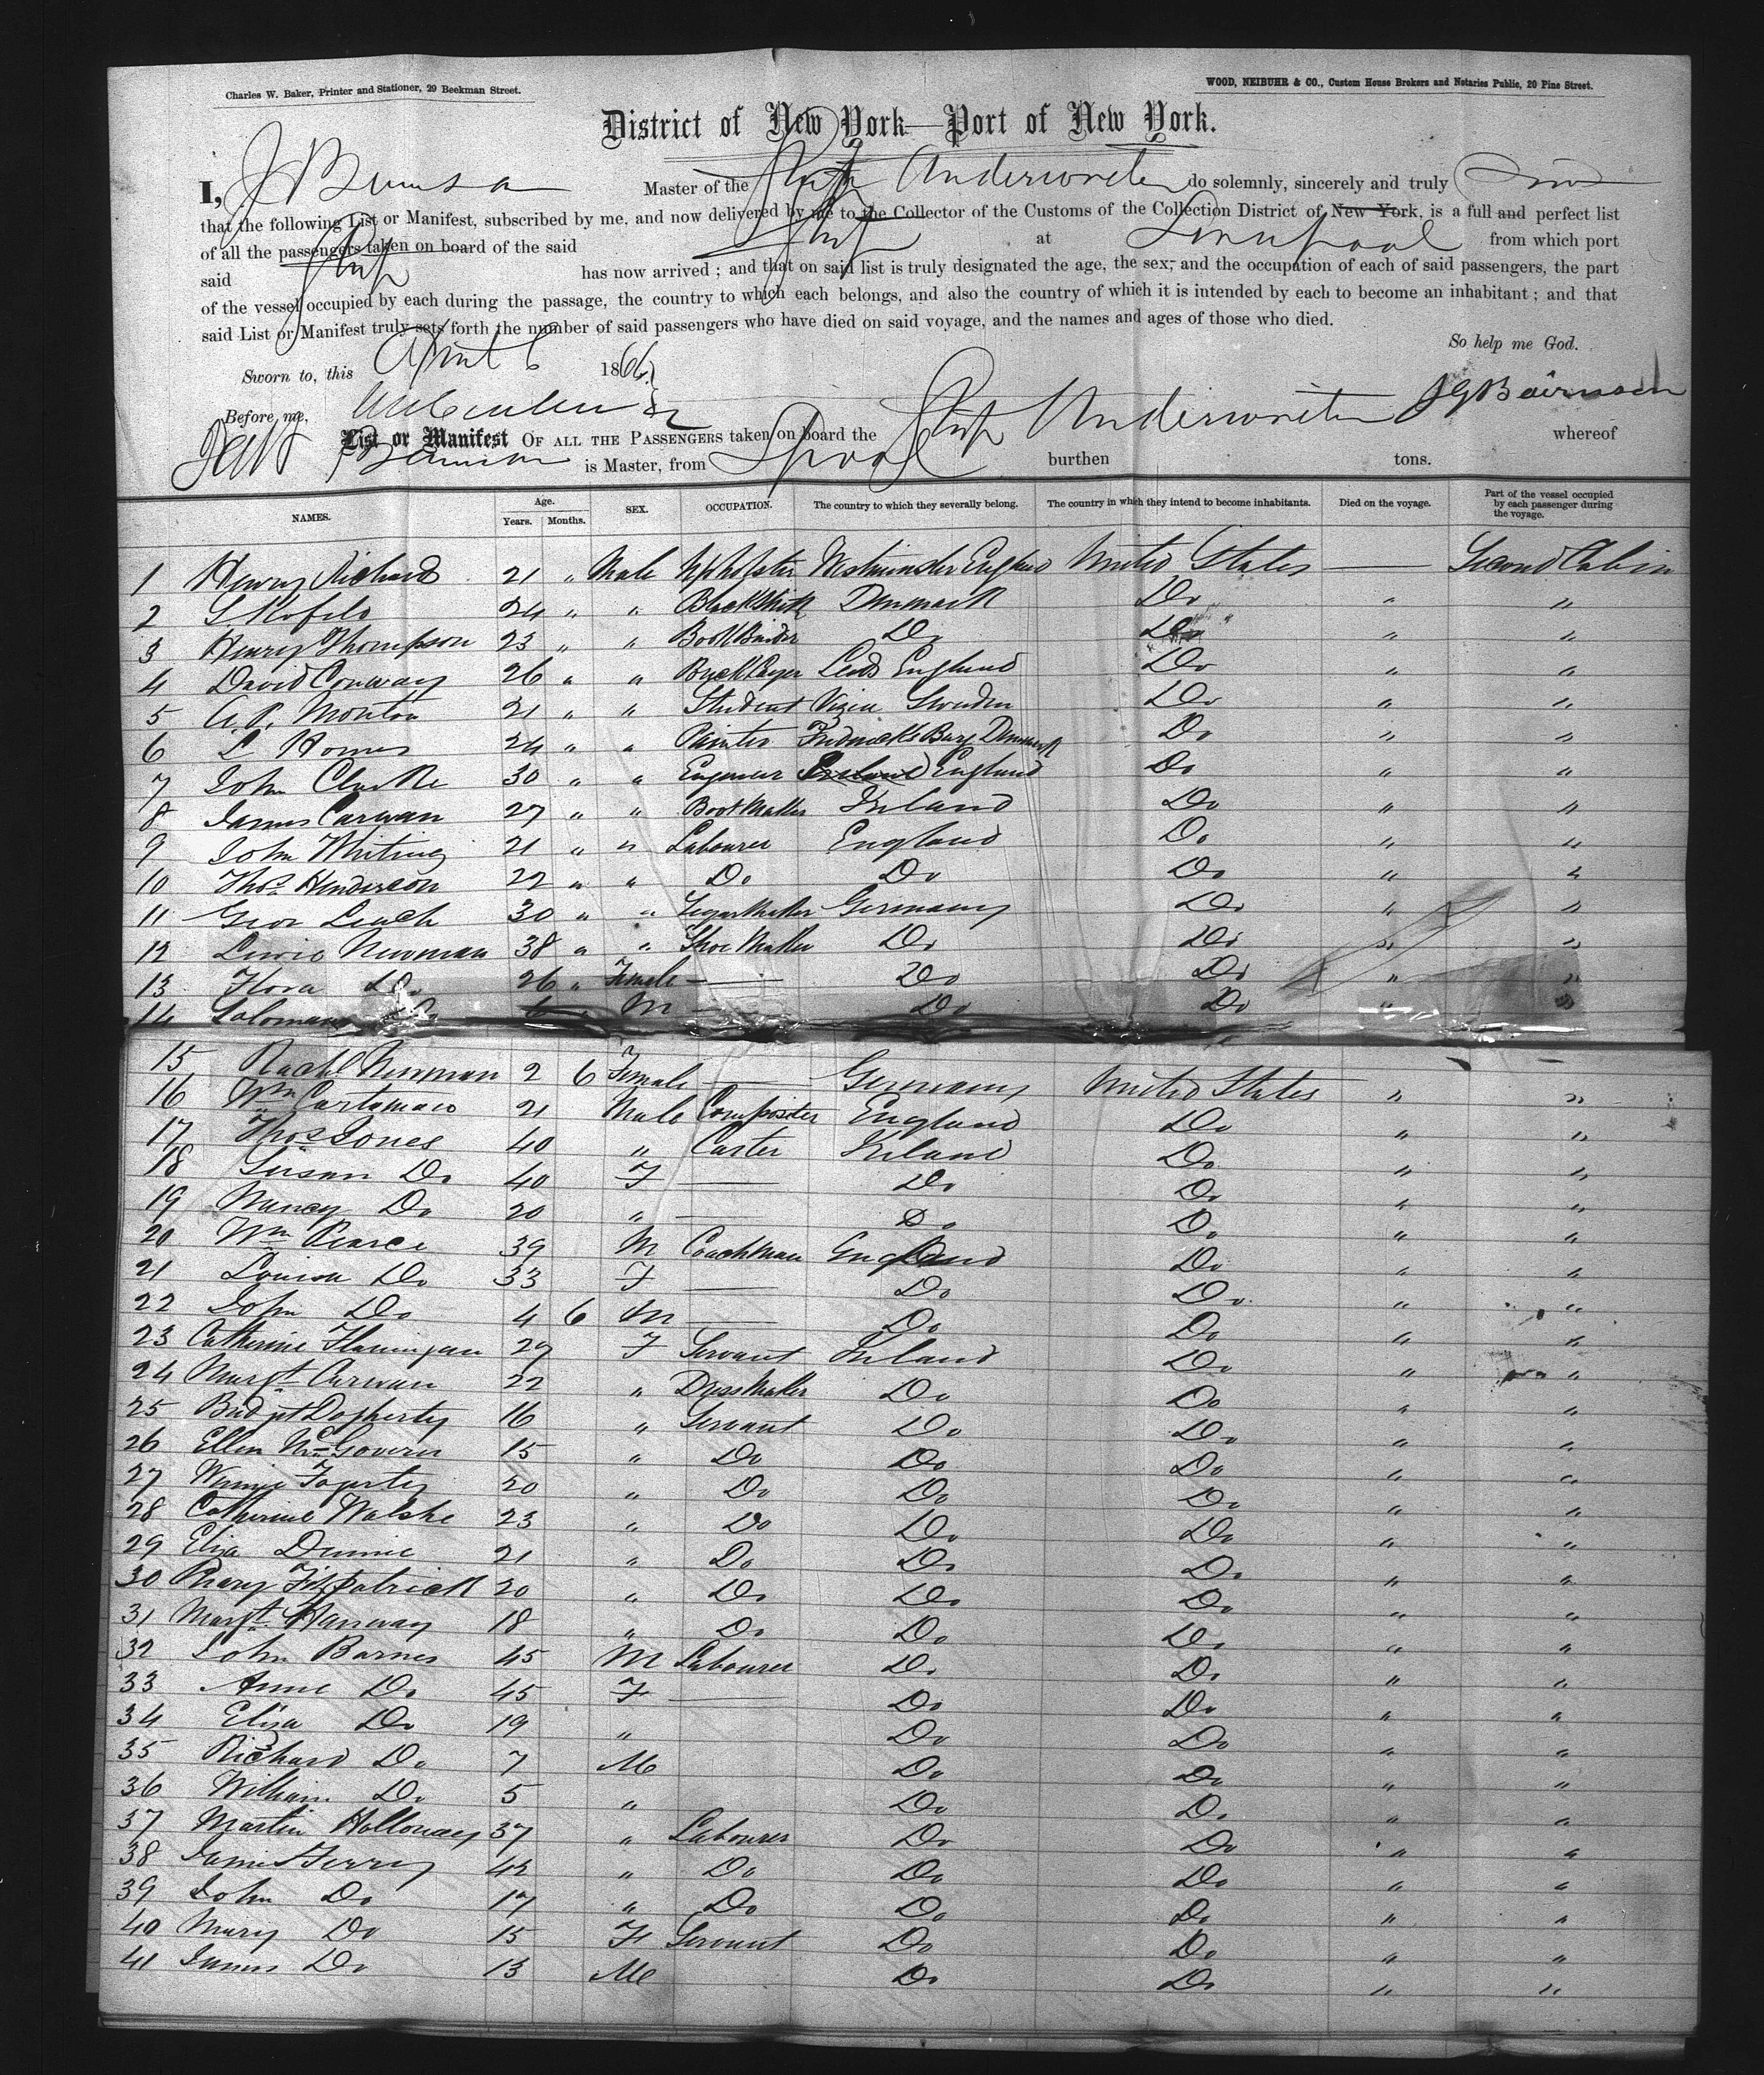 Charles W. Baker, Printer and Stationer, 29 Beekman Street.
WOOD, NEIBUHR & CO., Custom House Brokers and Notaries Public, 20 Pine Street.
District of New York—Port of New York.
I, Master of the Ship Underwriter do solemnly, sincerely and truly
that the following List or Manifest, subscribed by me, and now delivered by me to the Collector of the Customs of the Collection District of New York, is a full and perfect list
of all the passengers taken on board of the said Ship at Liverpool from which port
said Ship has now arrived; and that on said list is truly designated the age, the sex, and the occupation of each of said passengers, the part
of the vessel occupied by each during the passage, the country to which each belongs, and also the country of which it is intended by each to become an inhabitant; and that
said List or Manifest truly sets forth the number of said passengers who have died on said voyage, and the names and ages of those who died.
So help me God.
Sworn to, this April 6 1866
Before me,
List or Manifest OF ALL THE PASSENGERS taken on board the Ship Underwriter whereof
is Master, from Lpool burthen tons.
NAMES. Age. Years. Months. SEX. OCCUPATION. The country to which they severally belong. The country in which they intend to become inhabitants. Died on the voyage. Part of the vessel occupied by each passenger during the voyage.
1 Henry Richard 21 " Male Upholster Westminster England United States — Second Cabin
2 24 " " BlackSmith Denmark Do " "
3 Henry Thompson 23 " " Book Binder Do Do " "
4 David Conway 26 " " Brick Layer Leeds England Do " "
5 A. P. Monton 21 " " Student Sweden Do " "
6 L Homes 24 " " Painter Fredericks Burg Denmark Do " "
7 John Clarke 30 " " Engineer Ireland England Do " "
8 James Carwan 27 " " Boot Maker Ireland Do " "
9 John Whiting 21 " " Labourer England Do " "
10 Thos Henderson 22 " " Do Do Do " "
11 Geor Leach 30 " " Segar Maker Germany Do " "
12 Lewis Newman 38 " " Shoe Maker Do Do " "
13 Flora Do 26 " Female — Do Do " "
14 Soloman Do 6 M — Do Do " "
15 Rachl Newman 2 6 Female — Germany United States " "
16 Wm 21 Male Compositer England Do " "
17 Thos Jones 40 " Carter Ireland Do " "
18 Susan Do 40 F — Do Do " "
19 Nancy Do 20 " — Do Do " "
20 Wm Pearce 39 M Coachman England Do " "
21 Louisa Do 33 F — Do Do " "
22 John Do 4 6 M — Do Do " "
23 Catherine Flannigan 27 F Servant Ireland Do " "
24 Margt Curwan 22 " Dress Maker Do Do " "
25 Bridgt Dogherty 16 " Servant Do Do " "
26 Ellen McGovern 15 " Do Do Do " "
27 Winnie Fogerty 20 " Do Do Do " "
28 Catherine Walshe 23 " Do Do Do " "
29 Eliza Dunne 21 " Do Do Do " "
30 Mary Fitzpatrick 20 " Do Do Do " "
31 Margt Hanway 18 " Do Do Do " "
32 John Barnes 45 M Labourer Do Do " "
33 Anne Do 45 F — Do Do " "
34 Eliza Do 19 " Do Do " "
35 Richard Do 7 M Do Do " "
36 William Do 5 " Do Do " "
37 Martin Holloway 37 " Labourer Do Do " "
38 James Ferry 42 " Do Do Do " "
39 John Do 17 " Do Do Do " "
40 Mary Do 15 F Servant Do Do " "
41 James Do 13 M Do Do " "